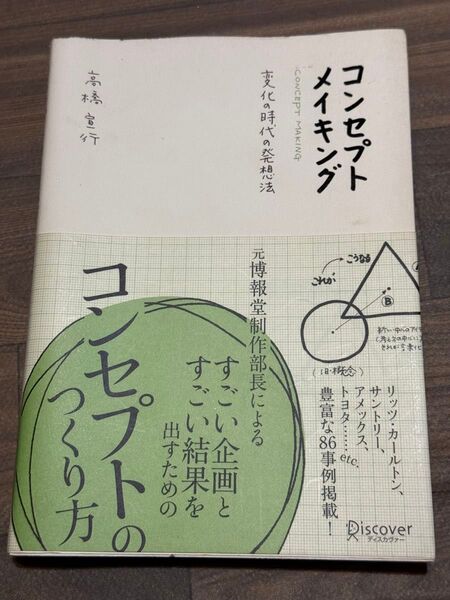 コンセプト
メイキング
CONCEPT MAKING
変化の時代の発想法
高橋宣行
元博報堂制作部長による
すごい企画と
すごい結果を
出すための
コンセプトの
つくり方
こうなる
これが
B
(旧・概念)
リッツ・カールトン、
サントリー、
アメックス、
トヨタ……etc.
豊富な86事例掲載！
Discover
ディスカヴァー